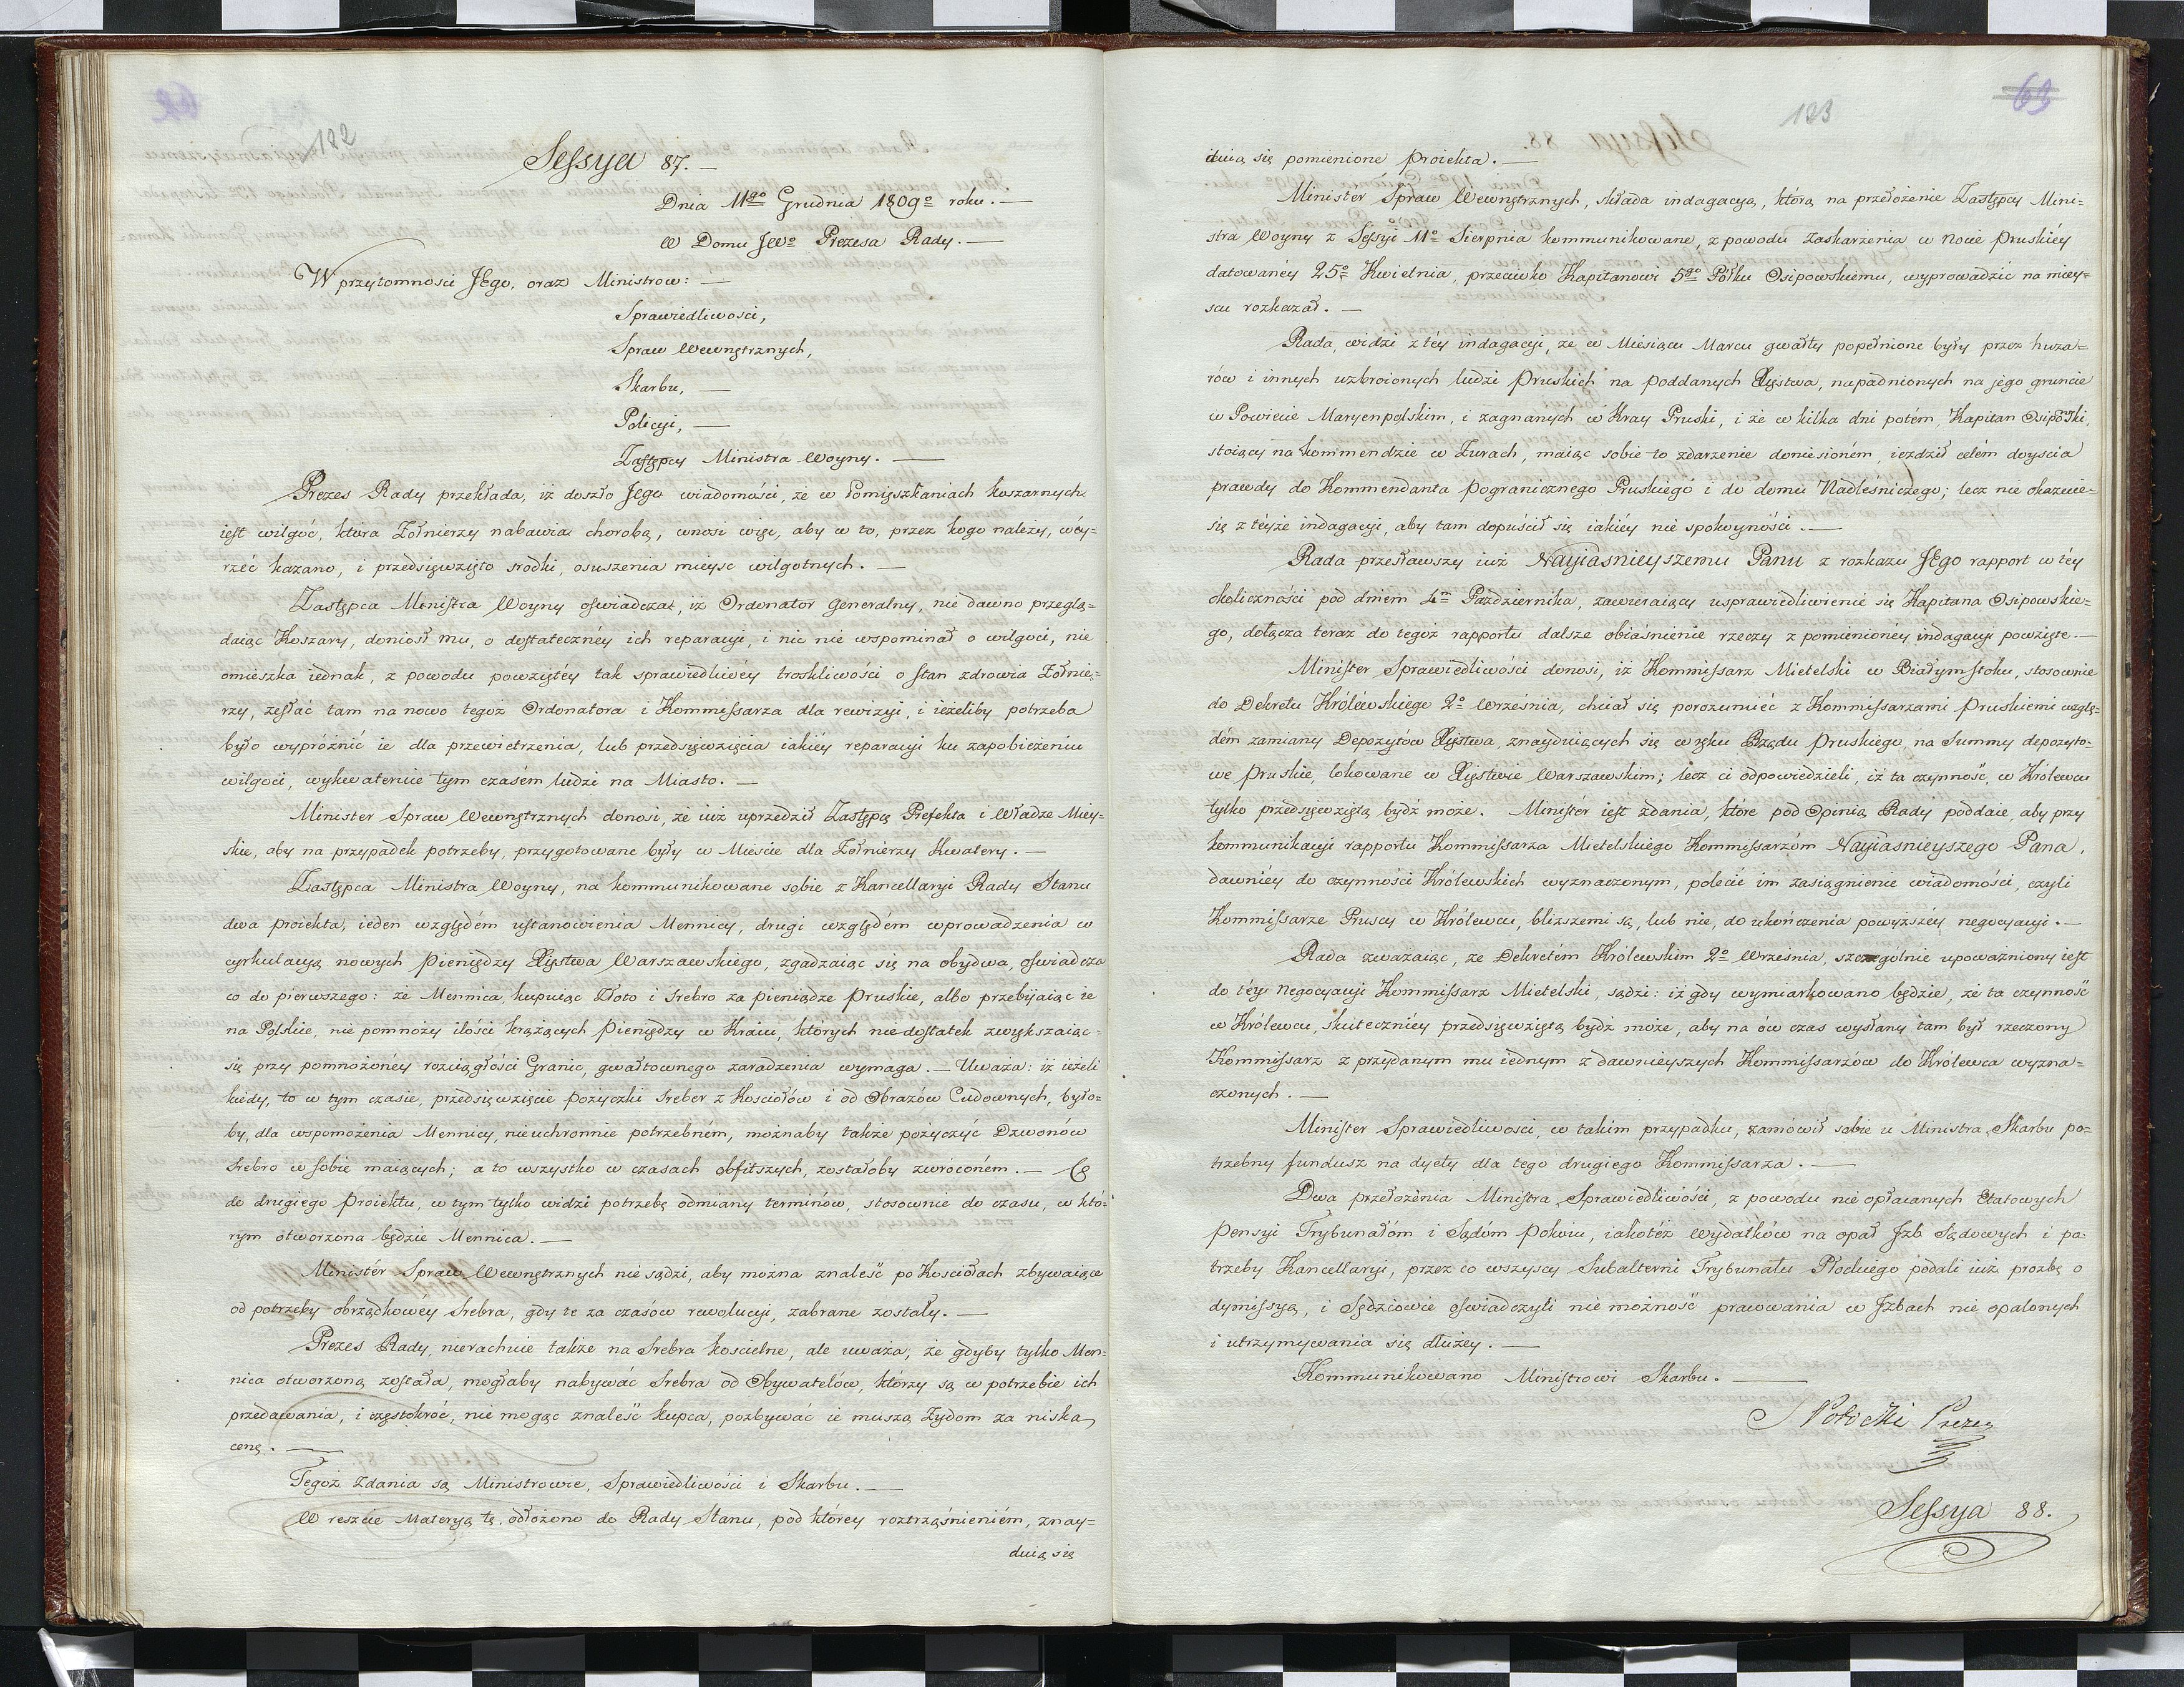 62
122
Sessya 87. —
Dnia 11go Grudnia 1809o roku. —
W Domu JWo Prezesa Rady. —
W przytomnosci JEgo, oraz Ministrow: —
Sprawiedliwosci,
Spraw Wewnętrznych,
Skarbu, —
Policyi, —
Zastępcy Ministra Woyny. —
Prezes Rady przekłada, iż doszło Jego wiadomości, że w Pomięszkaniach koszarnych
iest wilgoć, która Żołnierzy nabawia chorobą, wnosi więc, aby w to, przez kogo należy, wéy-
rzéć kazano, i przedsięwzięto srodki, osuszenia mieysc wilgotnych. —
Zastępca Ministra Woyny oświadczał, iż Ordonator Generalny, nie dawno przeglą-
daiąc Koszary, doniosł mu, o dostatecznéy ich reparacyi, i nic nie wspominał o wilgoci, nie
omieszka iednak, z powodu powziętéy tak sprawiedliwéy troskliwości o stan zdrowia Żołnie-
rzy, zesłać tam na nowo tegoż Ordonatora i Kommissarza dla rewizyi, i ieżeliby potrzeba
było wypróżnić ie dla przewietrzenia, lub przedsięwzięcia iakiéy reparacyi ku zapobieżeniu
wilgoci, wykwateruie tym czasém ludzi na Miasto. —
Minister Spraw Wewnętrznych donosi, że iuż uprzedził Zastępcę Prefekta i Władze Miey-
skie, aby na przypadek potrzeby, przygotowane były w Mieście dla Żołnierzy Kwatery. —
Zastępca Ministra Woyny, na kommunikowane sobie z Kancellaryi Rady Stanu
dwa proiekta, ieden względém ustanowienia Mennicy, drugi względém wprowadzenia w
cyrkulacyą nowych Pieniędzy Xięstwa Warszawskiego, zgadzaiąc się na obydwa, oświadcza
co do pierwszego: że Mennica, kupuiąc Złoto i srebro za pieniądze Pruskie, albo przebijaiąc ie
na Polskie, nie pomnoży ilości krążących Pieniędzy w Kraiu, których nie dostatek zwiększaiąc
się przy pomnożonéy rozciągłości Granic, gwałtownego zaradzenia wymaga. — Uważa: iż ieżeli
kiedy, to w tym czasie, przedsięwzięcie pożyczki Sreber z Kościołów i od Obrazów Cudownych, było-
by, dla wspomożenia Mennicy, nieuchronnie potrzebném, możnaby także pożyczyć Dzwonów
Srebro w sobie maiących; a to wszystko w czasach obfitszych, zostałoby zwróconém. — Co
do drugiego Proiektu, w tym tylko widzi potrzebę odmiany terminów, stosownie do czasu, w któ-
rym otworzona będzie Mennica. —
Ministér Spraw Wewnętrznych nie sądzi, aby można znaleść po Kosciołach zbywaiące
od potrzeby obrządkowéy Srebra, gdy te za czasów rewolucyi, zabrane zostały. —
Prezes Rady, nierachuie także na Srebra kościelne, ale uważa, że gdyby tylko Men-
nica otworzoną została, mogłaby nabywać Srebra od Obywatelów, którzy są w potrzebie ich
przedawania, i częstokroć, nie mogąc znaleść kupca, pozbywać ie muszą Żydom za niską
cenę. —
Tegoż Zdania są Ministrowie, Sprawiedliwości i Skarbu. —
W reszcie Materyą tę odłożono do Rady Stanu, pod którey roztrząśnieniém, znay-
duią się
63
123
duią się pomienione Proiekta. —
Ministér Spraw Wewnętrznych, składa indagacyą, którą na przełożenie Zastępcy Mini-
stra Woyny z Sessyi 11o Sierpnia kommunikowane, z powodu Zaskarżenia w Nocie Pruskiéy
datowanéy 25o Kwietnia, przeciwko Kapitanowi 5go Półku Osipowskiému, wyprowadzić na miey-
scu rozkazał. —
Rada, widzi z téy indagacyi, że w Miesiącu Marcu gwałty popełnione były przez huza-
rów i innych uzbroionych ludzi Pruskich na Poddanych Xięstwa, napadnionych na jego gruncie
w Powiecie Maryenpolskim, i zagnanych w Kray Pruski, i że w kilka dni potém, Kapitan Osipowski,
stoiący na Kommendzie w Zurach, maiąc sobie to zdarzenie doniesioném, ieździł celém doyscia
prawdy do Kommendanta Pogranicznego Pruskiego i do domu Nadleśniczego; lecz nie okazuie
się z téyże indagacyi, aby tam dopuścił się iakiéy nie spokoyności. —
Rada przesławszy iuż Nayiasnieyszemu Panu z rozkazu JEgo rapport w téy
okoliczności pod dniem 4m Października, zawieraiący usprawiedliwienie się Kapitana Osipowskie-
go, dołącza teraz do tegoż rapportu dalsze obiaśnienie rzeczy z pomienionéy indagacyi powzięte. —
Minister Sprawiedliwości donosi, iż Kommissarz Mietelski w Białymstoku, stosownie
do Dekretu Królewskiego 2o Września, chciał się porozumiéć z Kommissarzami Pruskiemi wzglę-
dém zamiany Depozytów Xięstwa, znayduiących się w ręku Rządu Pruskiego, na Summy depozyto-
we Pruskie, lokowane w Xięstwie Warszawskim; lecz ci odpowiedzieli, iż ta czynność, w Królewcu
tylko przedsięwziętą bydź może. Ministér iest zdania, które pod Opinią Rady poddaie, aby przy
kommunikacyi rapportu Kommissarza Mietelskiego Kommissarzóm Nayiasnieyszego Pana,
dawniéy do czynności Królewskich wyznaczonym, polecić im zasiągnienie wiadomości, czyli
Kommissarze Pruscy w Królewcu, bliższemi są, lub nie, do ukończenia powyższéy negocyacyi. —
Rada zważaiąc, że Dekretém Królewskim 2o Września, szczególnie upoważniony iest
do téy negocyacyi Kommissarz Mietelski, sądzi: iż gdy wymiarkowano będzie, że ta czynność
w Królewcu, skuteczniéy przedsięwziętą bydź może, aby na ów czas wysłany tam był rzeczony
Kommissarz z przydanym mu iednym z dawnieyszych Kommissarzów do Królewca wyzna-
czonych. —
Minister Sprawiedliwosci, w takim przypadku, zamówił sobie u Ministra Skarbu po-
trzebny fundusz na dyety dla tego drugiego Kommissarza. —
Dwa przełożenia Ministra Sprawiedliwości, z powodu nie opłacanych Etatowych
Pensyi Trybunałóm i Sądóm Pokoiu, iakotéż Wydatków na opał Jzb Sądowych i po-
trzeby Kancellaryi, przez co wszyscy Subalterni Trybunału Płockiego podali iuż prozbę o
dymissyą, i Sędziowie oświadczyli nie możność pracowania w Jzbach nie opalonych
i utrzymywania się dłużey. —
Kommunikowano Ministrowi Skarbu. —
S Potocki Prezes
Sessya 88.